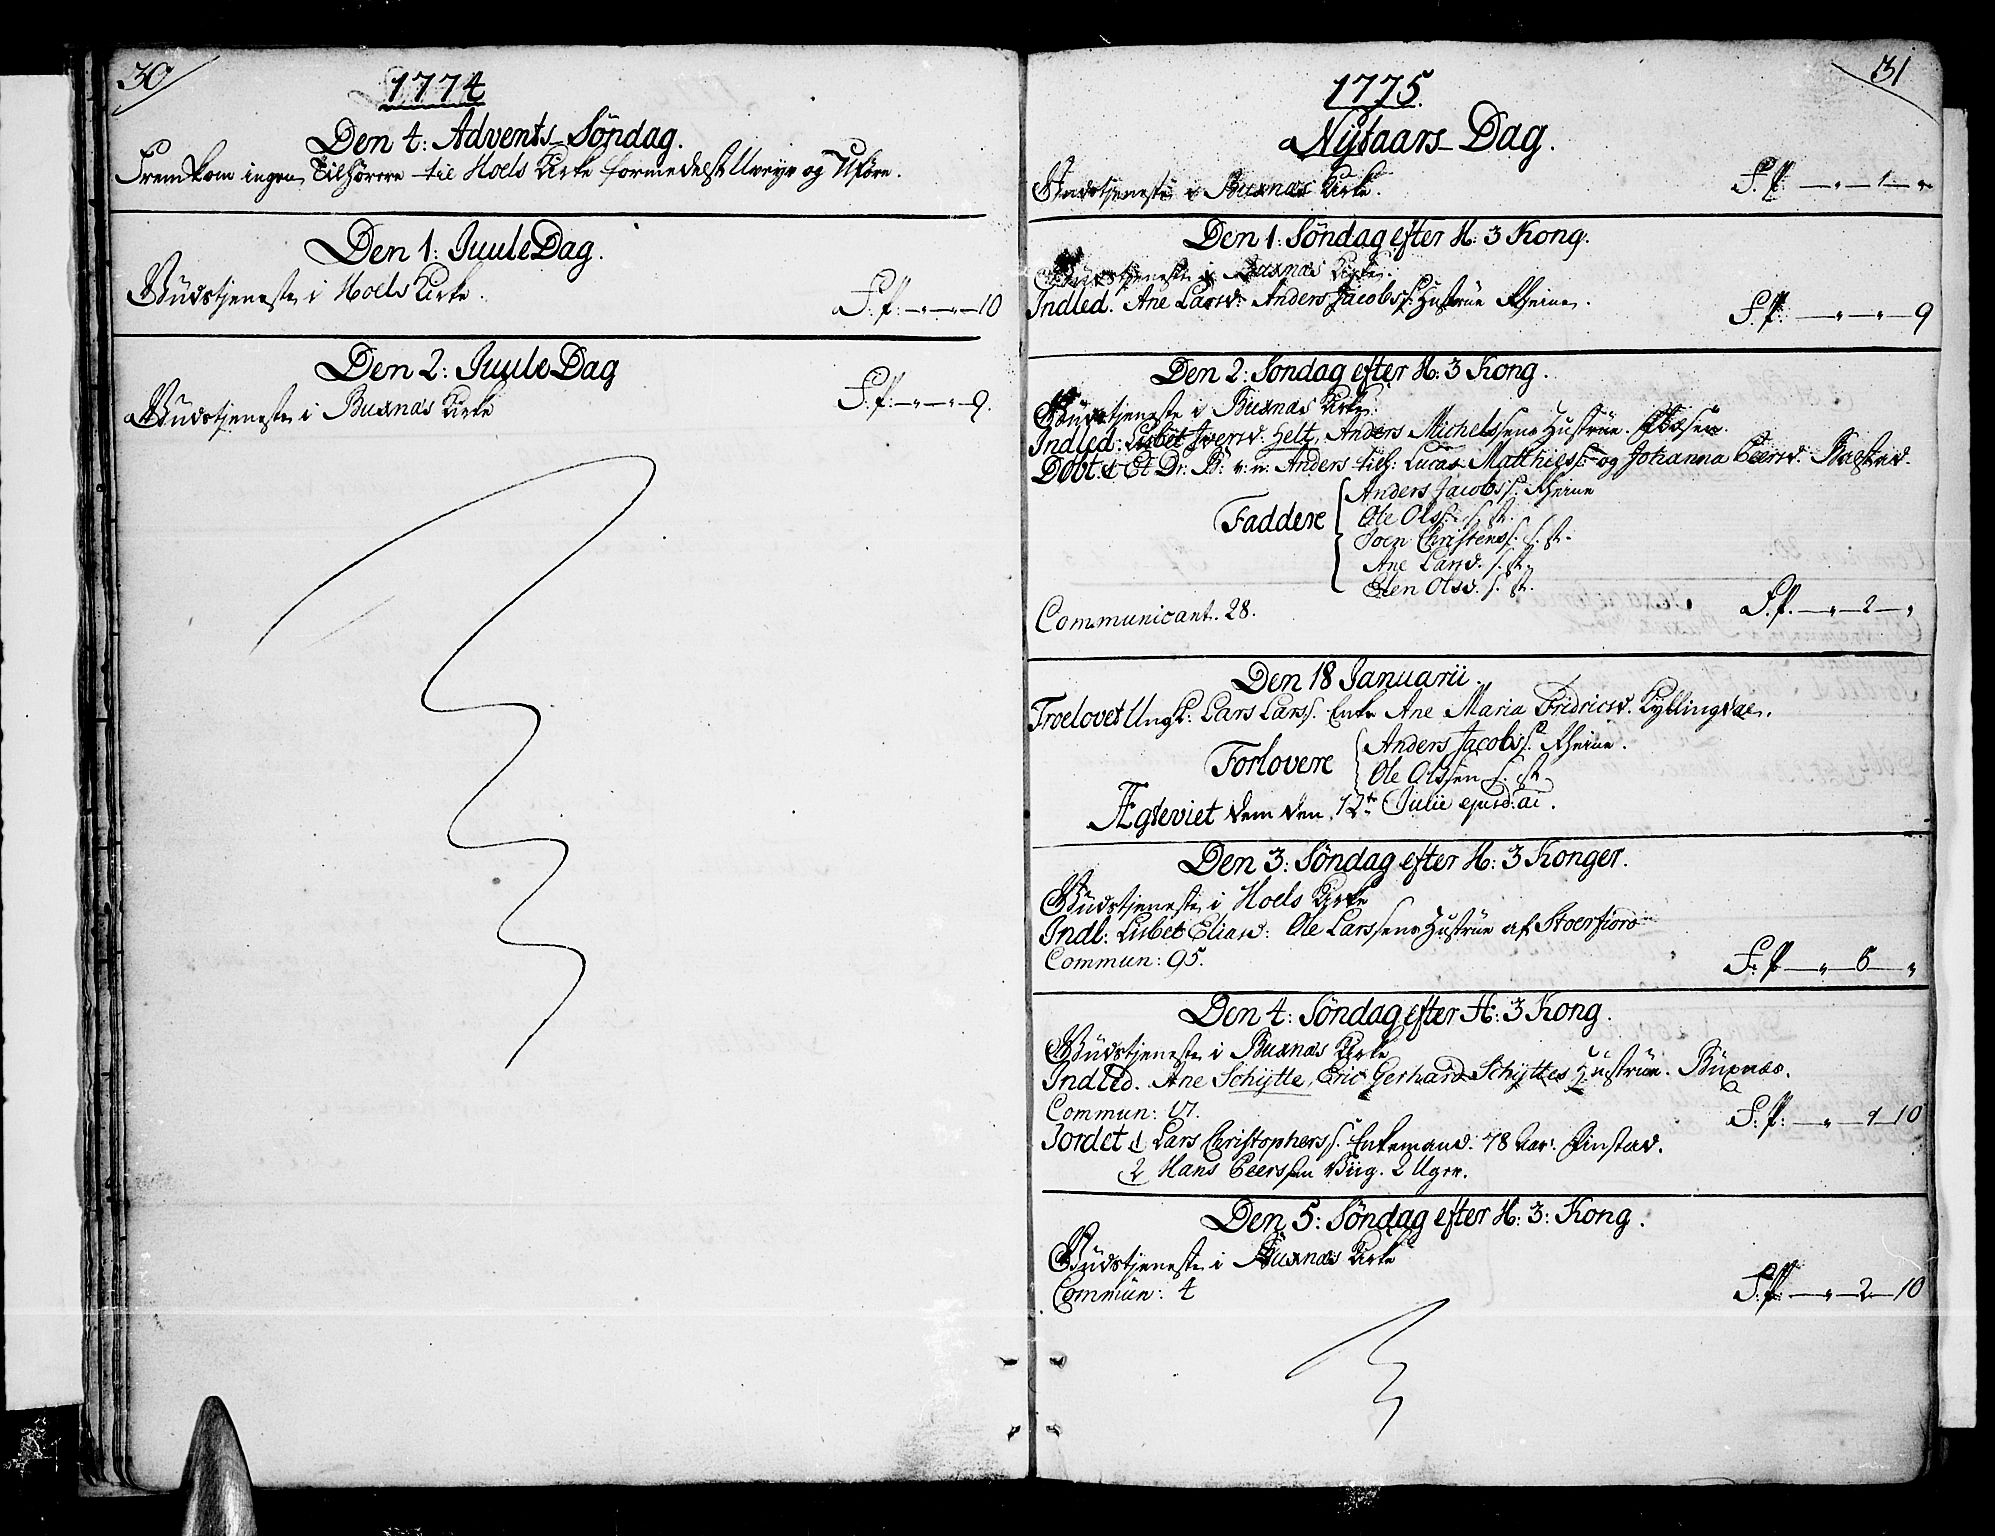 30
1774
Den 4: Advents-Søndag.
Fremkom ingen Tilhørere til Hoels Kirke formedelst Uveyr og Uføre.
Den 1: JuuleDag.
Gudstjeneste i Hoels Kirke.
S: f: — " — " — 10
Den 2: JuuleDag
Gudstjeneste i Buxnæs Kirke
S: f: — " — " — 9.
31
1775.
Nytaars-Dag.
Gudstjeneste i Buxnæs Kirke.
S. f: — " — 1 — "
Den 1: Søndag efter H: 3 Kong.
Gudstjeneste i Buxnæs Kirke.
Indled. Ane Larsd: Anders Jacobss: Hustrue Rheine.
S: f: — " — " — 9
Den 2: Søndag efter H: 3 Kong.
Gudstjeneste i Buxnæs Kirke.
Indled: Lisbet Iversd: Helt, Anders Michelssens Hustrüe.
Døbt. Et Dr. B: v: n: Anders tilh: Lucas Matthiess: og Johanna Peersd. Balstad.
Faddere
Anders Jacobss: Rheine
Ole Olss: s. st.
Joen Christenss: s. st.
Ane Larsd. s. st.
Elen Olsd. s. st.
Communicant. 28.
S. f. — " — 2 — "
Den 18 Januarii.
Troelovet Ungk: Lars Larss. Enke Ane Maria Fridricsd. Kyllingdal.
Forlovere
Anders Jacobss: Rheine.
Ole Olssen s. st.
Ægteviet dem den 12te Julii ejusd: ai.
Den 3: Søndag efter H: 3 Konger.
Gudstjeneste i Hoels Kirke
Indl: Lisbet Eliasd: Ole Larssens Hustrüe af Stoerfiord
Commun: 95.
S: f — " — 6 — "
Den 4: Søndag efter H: 3 Kong.
Gudstjeneste i Buxnæs Kirke
Indled. Ane Schytte, Eric Gerhard Schyttes Hustrüe. Büxnæs.
Commun: 17.
S: f: — " — 1 10
Jordet 1 Lars Christophers s. Enkemand. 78 Aar. Finstad.
2 Hans Peerssen Viig. 2 Uger.
Den 5: Søndag efter H: 3: Kong.
Gudstjeneste i Buxnæs Kirke
Commün: 4
S: f: — " — 2 — 10